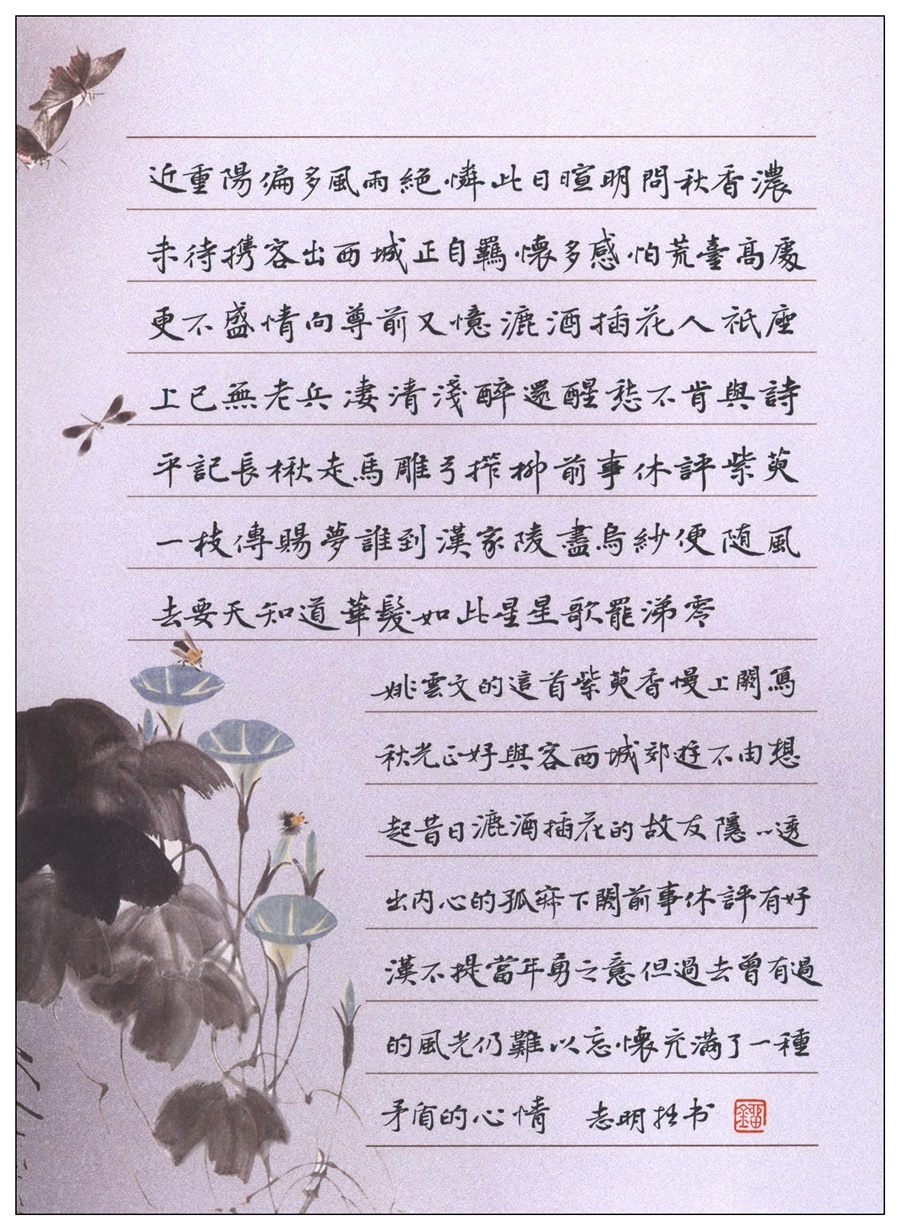 近重陽偏多風雨絕憐此日暄明問秋香濃
未待攜客出西城正自羈懷多感怕荒臺高處
更不盛情向尊前又憶漉酒插花人祇座
上已無老兵淒清淺醉還醒愁不肯與詩
平記長楸走馬雕弓搾柳前事休評紫萸
一枝傳賜夢誰到漢家陵盡烏紗便隨風
去要天知道華髮如此星星歌罷涕零
姚雲文的這首紫萸香慢上闕寫
秋光正好與客西城郊遊不由想
起昔日漉酒插花的故友隱〻透
出內心的孤寂下闕前事休評有好
漢不提當年勇之意但過去曾有過
的風光仍難以忘懷充滿了一種
矛盾的心情 志明拙书